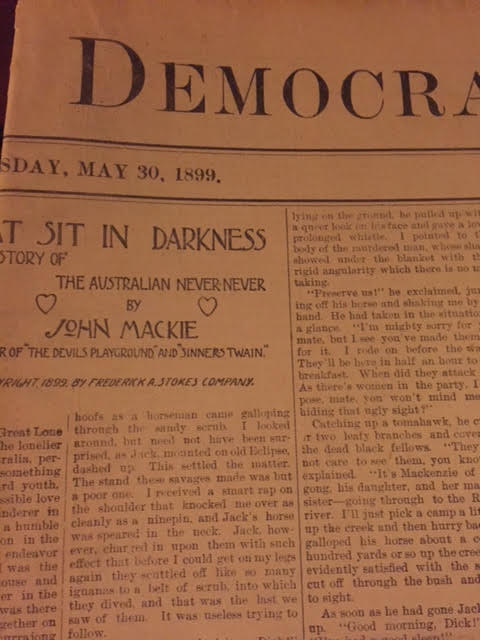 DEMOCRA
SDAY, MAY 30, 1899.
AT SIT IN DARKNESS
STORY OF
THE AUSTRALIAN NEVER-NEVER
BY
JOHN MACKIE
R OF "THE DEVILS PLAYGROUND" AND "SINNERS TWAIN."
YRIGHT, 1899, BY FREDERICK A. STOKES COMPANY.
Great Lone
he lonelier
ralia, per-
something
rd youth,
ssible love
nderer in
a humble
on in the
endeavor
I was the
ouse and
er in the
was there
gether on
urraging
hoofs as a horseman came galloping
through the sandy scrub. I looked
around, but need not have been sur-
prised, as Jack, mounted on old Eclipse,
dashed up. This settled the matter.
The stand these savages made was but
a poor one. I received a smart rap on
the shoulder that knocked me over as
cleanly as a ninepin, and Jack's horse
was speared in the neck. Jack, how-
ever, charged in upon them with such
effect that before I could get on my legs
again they scuttled off like so many
iguanas to a belt of scrub, into which
they dived, and that was the last we
saw of them. It was useless trying to
follow.
lying on the ground, he pulled up wi
a queer look on his face and gave a lo
prolonged whistle. I pointed to t
body of the murdered man, whose sha
showed under the blanket with th
rigid angularity which there is no m
taking.
"Preserve us!" he exclaimed, jum
ing off his horse and shaking me by
hand. He had taken in the situation
a glance. "I'm mighty sorry for
mate, but I see you've made them
for it. I rode on before the wa
They'll be here in half an hour to
breakfast. When did they attack
As there's women in the party. I
pose, mate, you won't mind me
hiding that ugly sight?"
Catching up a tomahawk, he c
r two leafy branches and cover
the dead black fellows. "They
not care to see them, you know
explained. "It's Mackenzie of
gong, his daughter, and her ma
sister—going through to the R
river. I'll just pick a camp a lit
up the creek and then hurry bac
galloped his horse about a c
hundred yards or so up the cree
evidently satisfied with the s
cut off through the bush and
to sight.
As soon as he had gone Jack
up. "Good morning, Dick!"